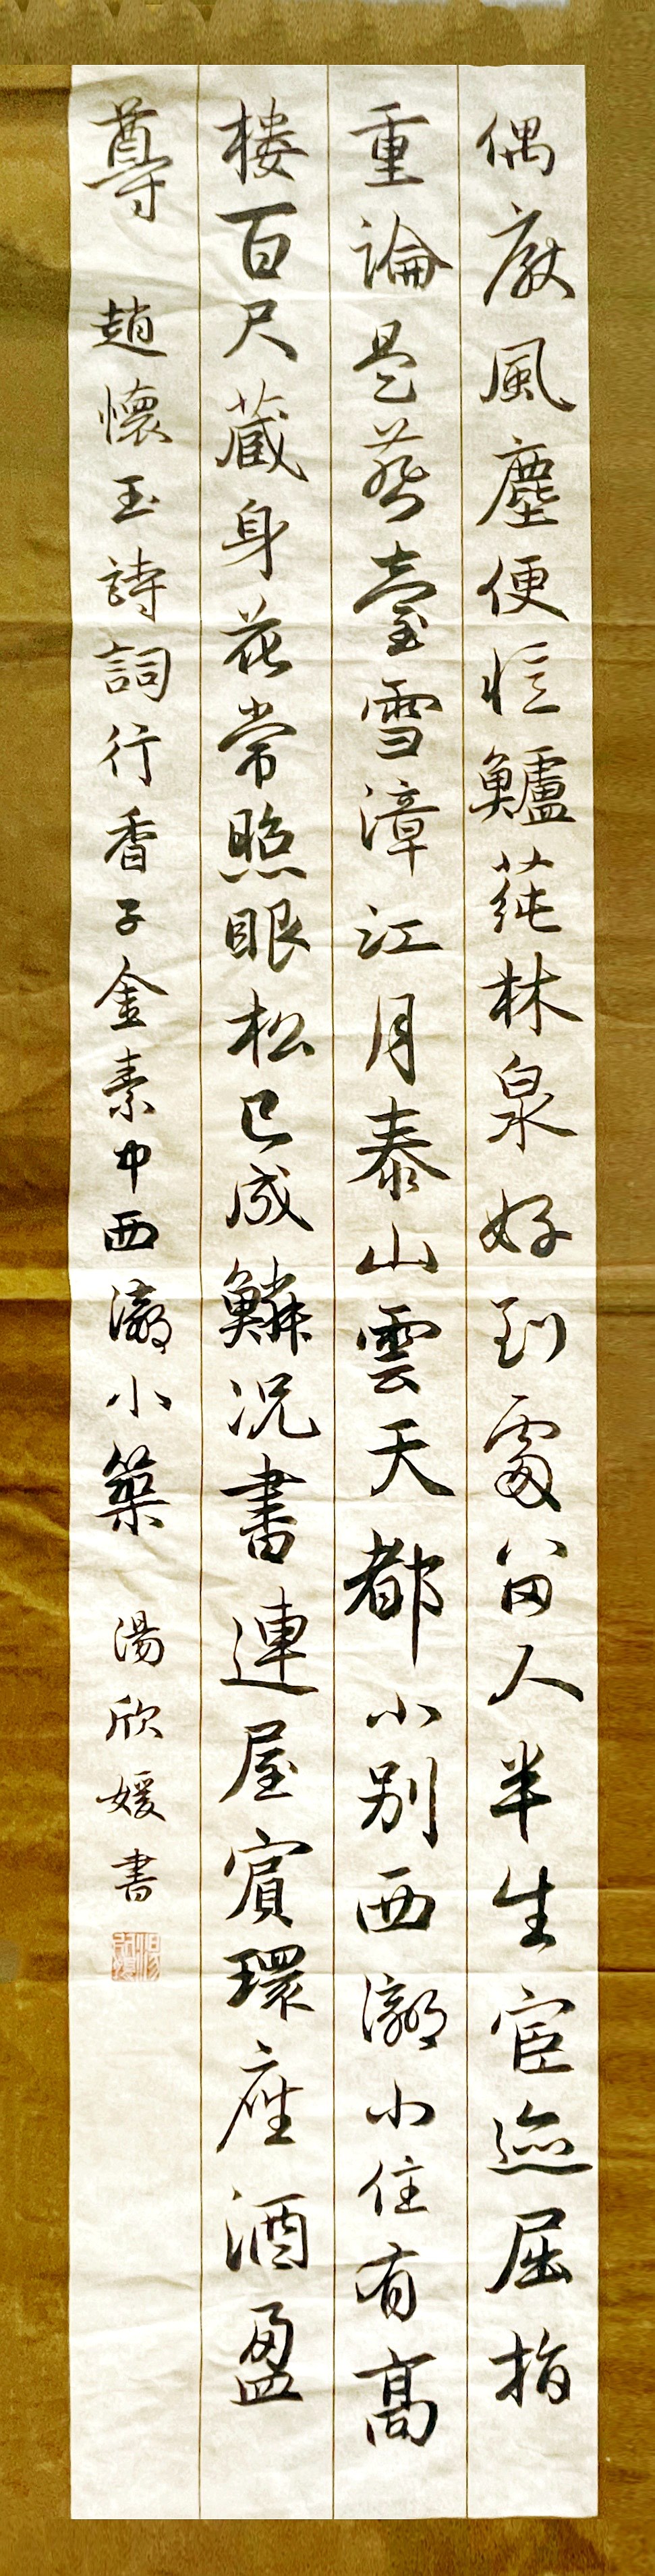 偶厭風塵便憶鱸蒓林泉好到處留人半生宦迹屈指
重論是燕臺雪漳江月泰山雲天都小別西瀛小住有高
樓百尺藏身花常照眼松已成鱗况書連屋賓環座酒盈
尊 趙懷玉詩詞行香子金素中西瀛小築 湯欣媛書